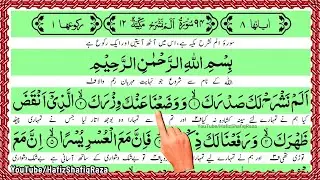 اٰیاتہا ۸ ۹۴ سُوْرَةُ اَلَمْ نَشْرَحْ مَكِّيَّةٌ ۱۲ رکوعہا ۱
سورۂ الم نشرح مکیہ ہے، اس میں آٹھ آیتیں اور ایک رکوع ہے
بِسْمِ اللهِ الرَّحْمٰنِ الرَّحِيْمِ
اللہ کے نام سے شروع جو نہایت مہربان رحم والا
اَلَمْ نَشْرَحْ لَكَ صَدْرَكَ ۙ وَوَضَعْنَا عَنْكَ وِزْرَكَ ۙ الَّذِيْۤ اَنْقَضَ
YouTube/HafizShafiqRaza
ظَهْرَكَ ۙ وَرَفَعْنَا لَكَ ذِكْرَكَ ؕ فَاِنَّ مَعَ الْعُسْرِ يُسْرًا ۙ اِنَّ مَعَ
YouTube/HafizShafiqRaza